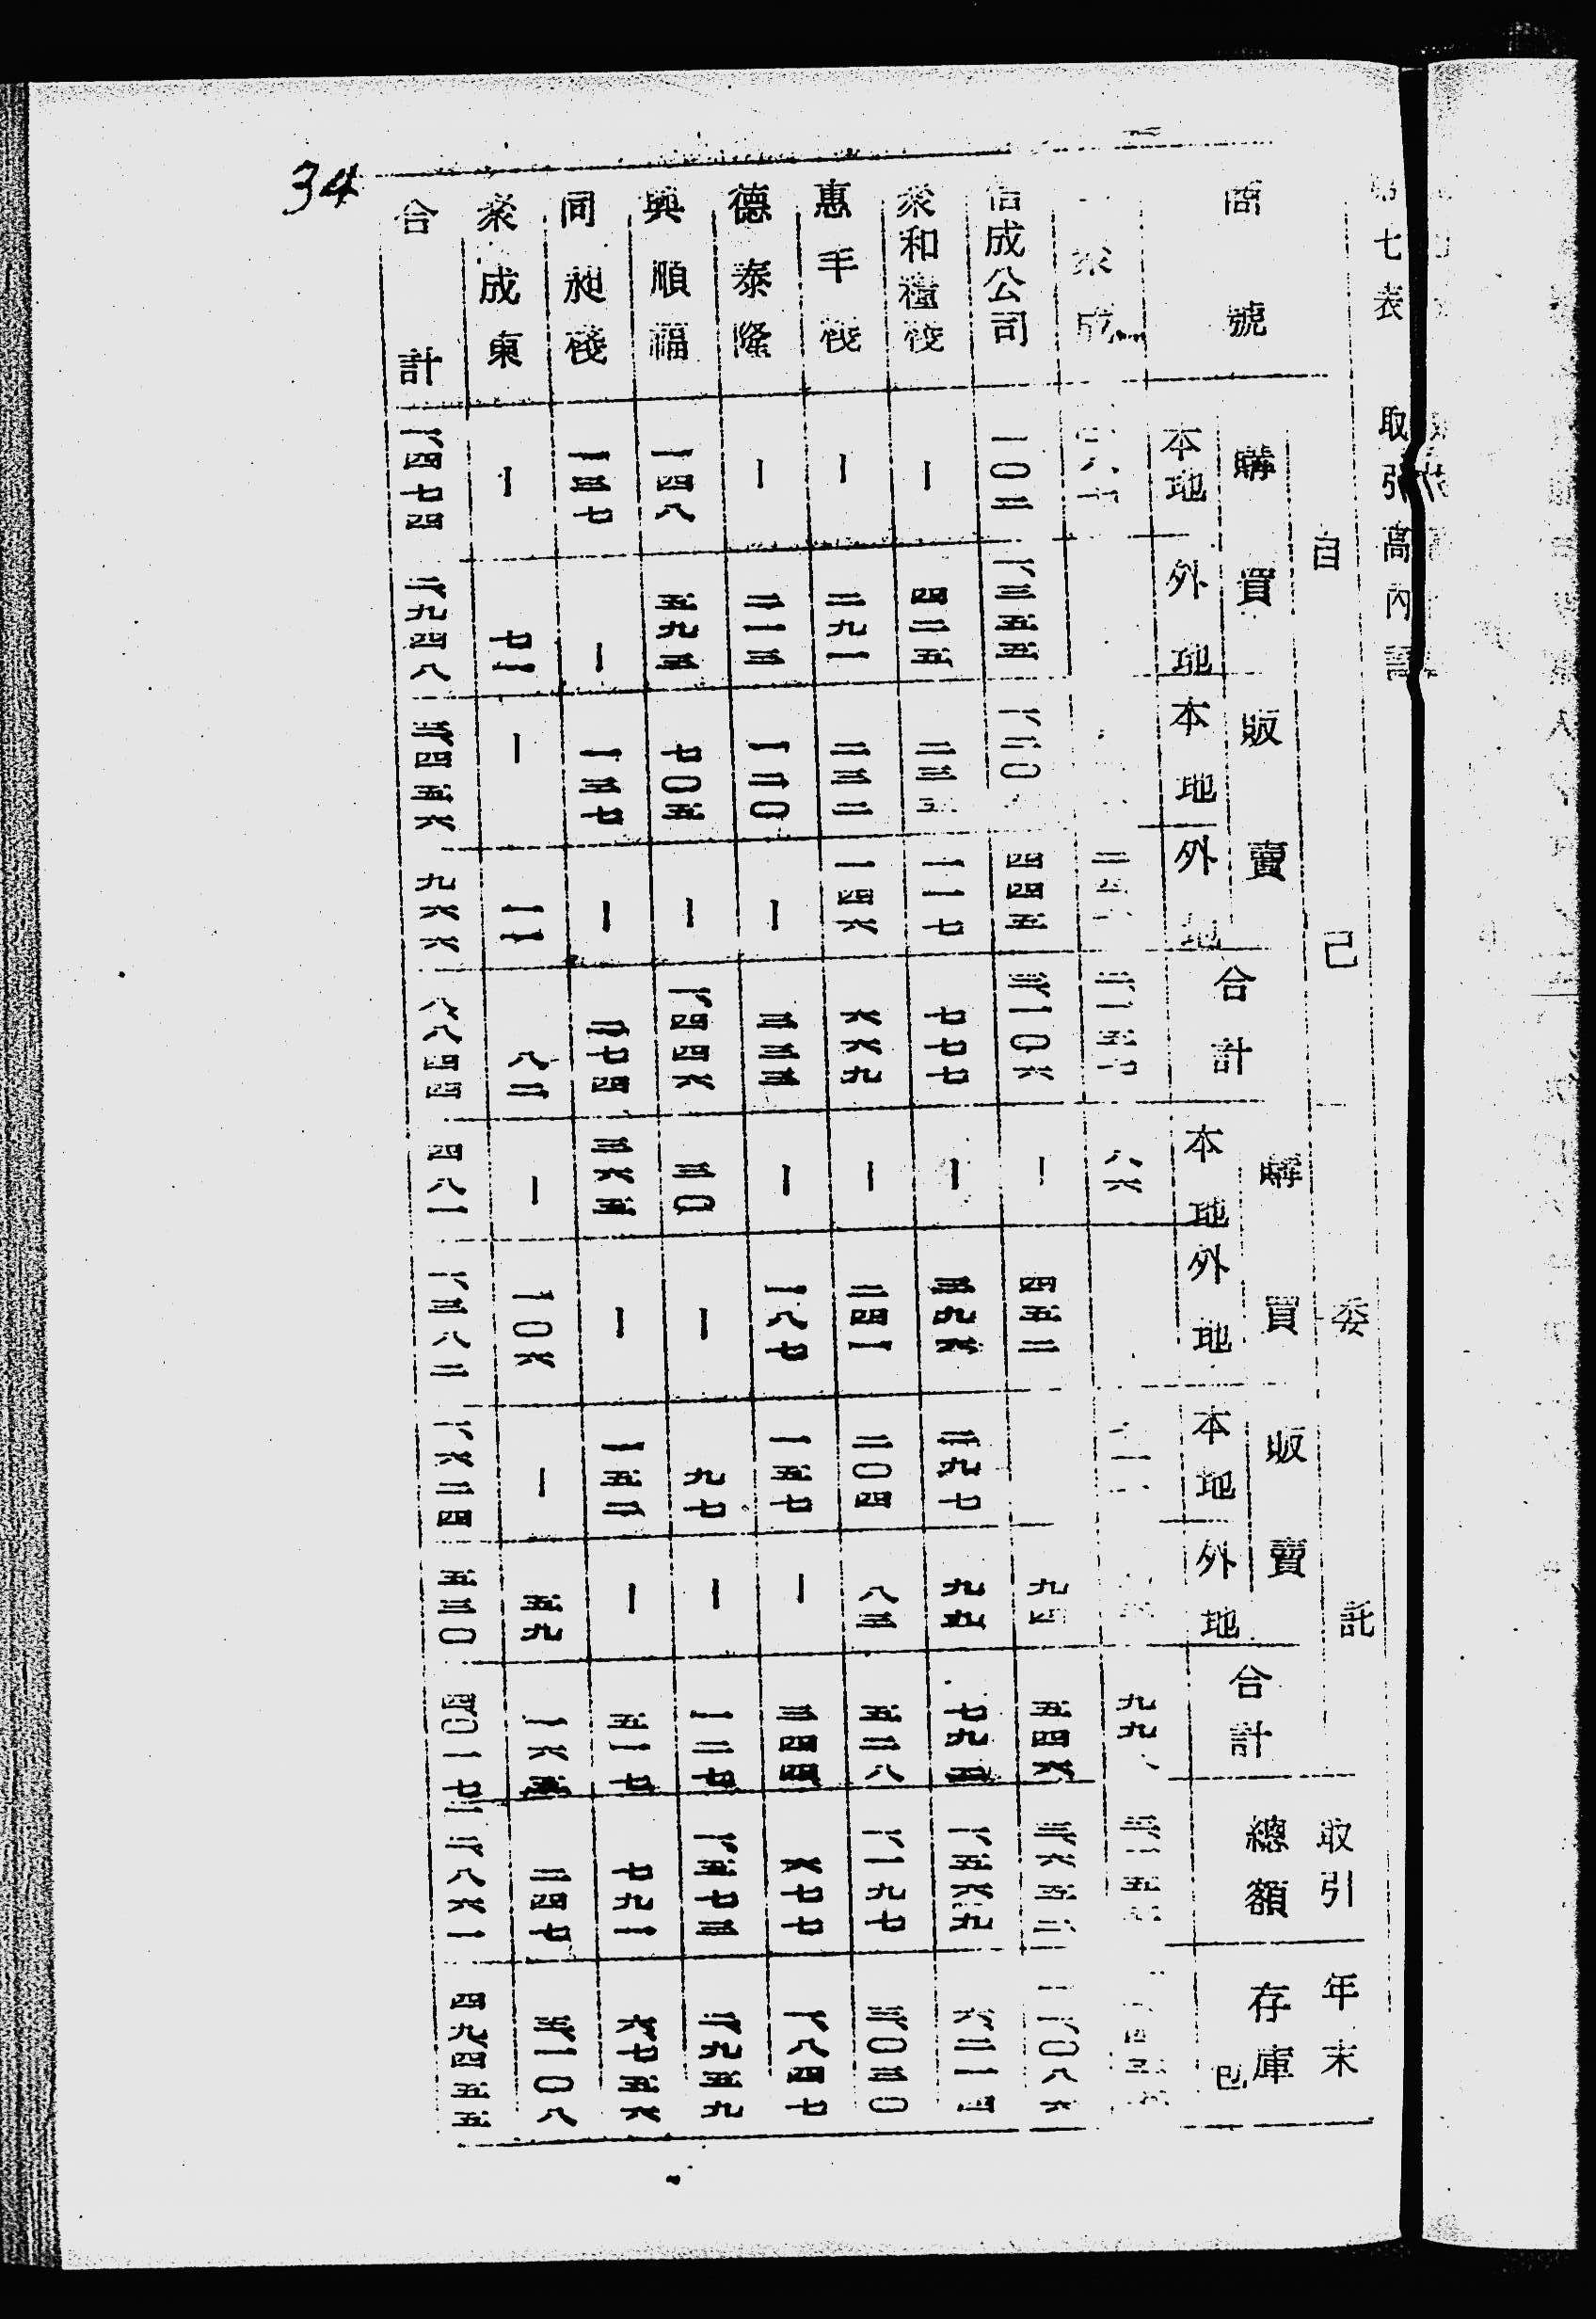 七表 取引高內
自己 委託 取引 年末
購買 販賣 合計 購買 販賣 合計 總額 存庫
商號 本地 外地 本地 外地 本地 外地 本地 外地 包
八六
信成公司 一〇二 一、三五五 四四五 三、一〇六 ー 四五二 九四 五四六 三、六五二 一一、〇八六
聚和糧棧 ー 四二五 二三五 一一七 七七七 ー 三九六 二九七 九九 七九二 一、五六九 六、二一四
惠丰棧 ー 二九一 二三二 一四六 六六九 ー 二四一 二〇四 八三 五二八 一、一九七 三、〇三〇
德泰隆 ー 二一三 一二〇 ー 三三三 ー 一八七 一五七 ー 三四四 六七七 一、八四七
興順福 一四八 五九三 七〇五 ー 一、四四六 三〇 ー 九七 ー 一二七 一、五七三 二、九五九
同昶棧 一三七 ー 一三七 ー 二七四 三六五 ー 一五二 ー 五一七 七九一 六、七五六
聚成東 ー 七一 ー 一一 八二 ー 一〇六 ー 五九 一六五 二四七 三、一〇八
合計 一、四七四 二、九四八 三、四五六 九六六 八、八四四 四八一 一、三八二 一、六二四 五三〇 四、〇一七 一二、八六一 四九、四五五
34